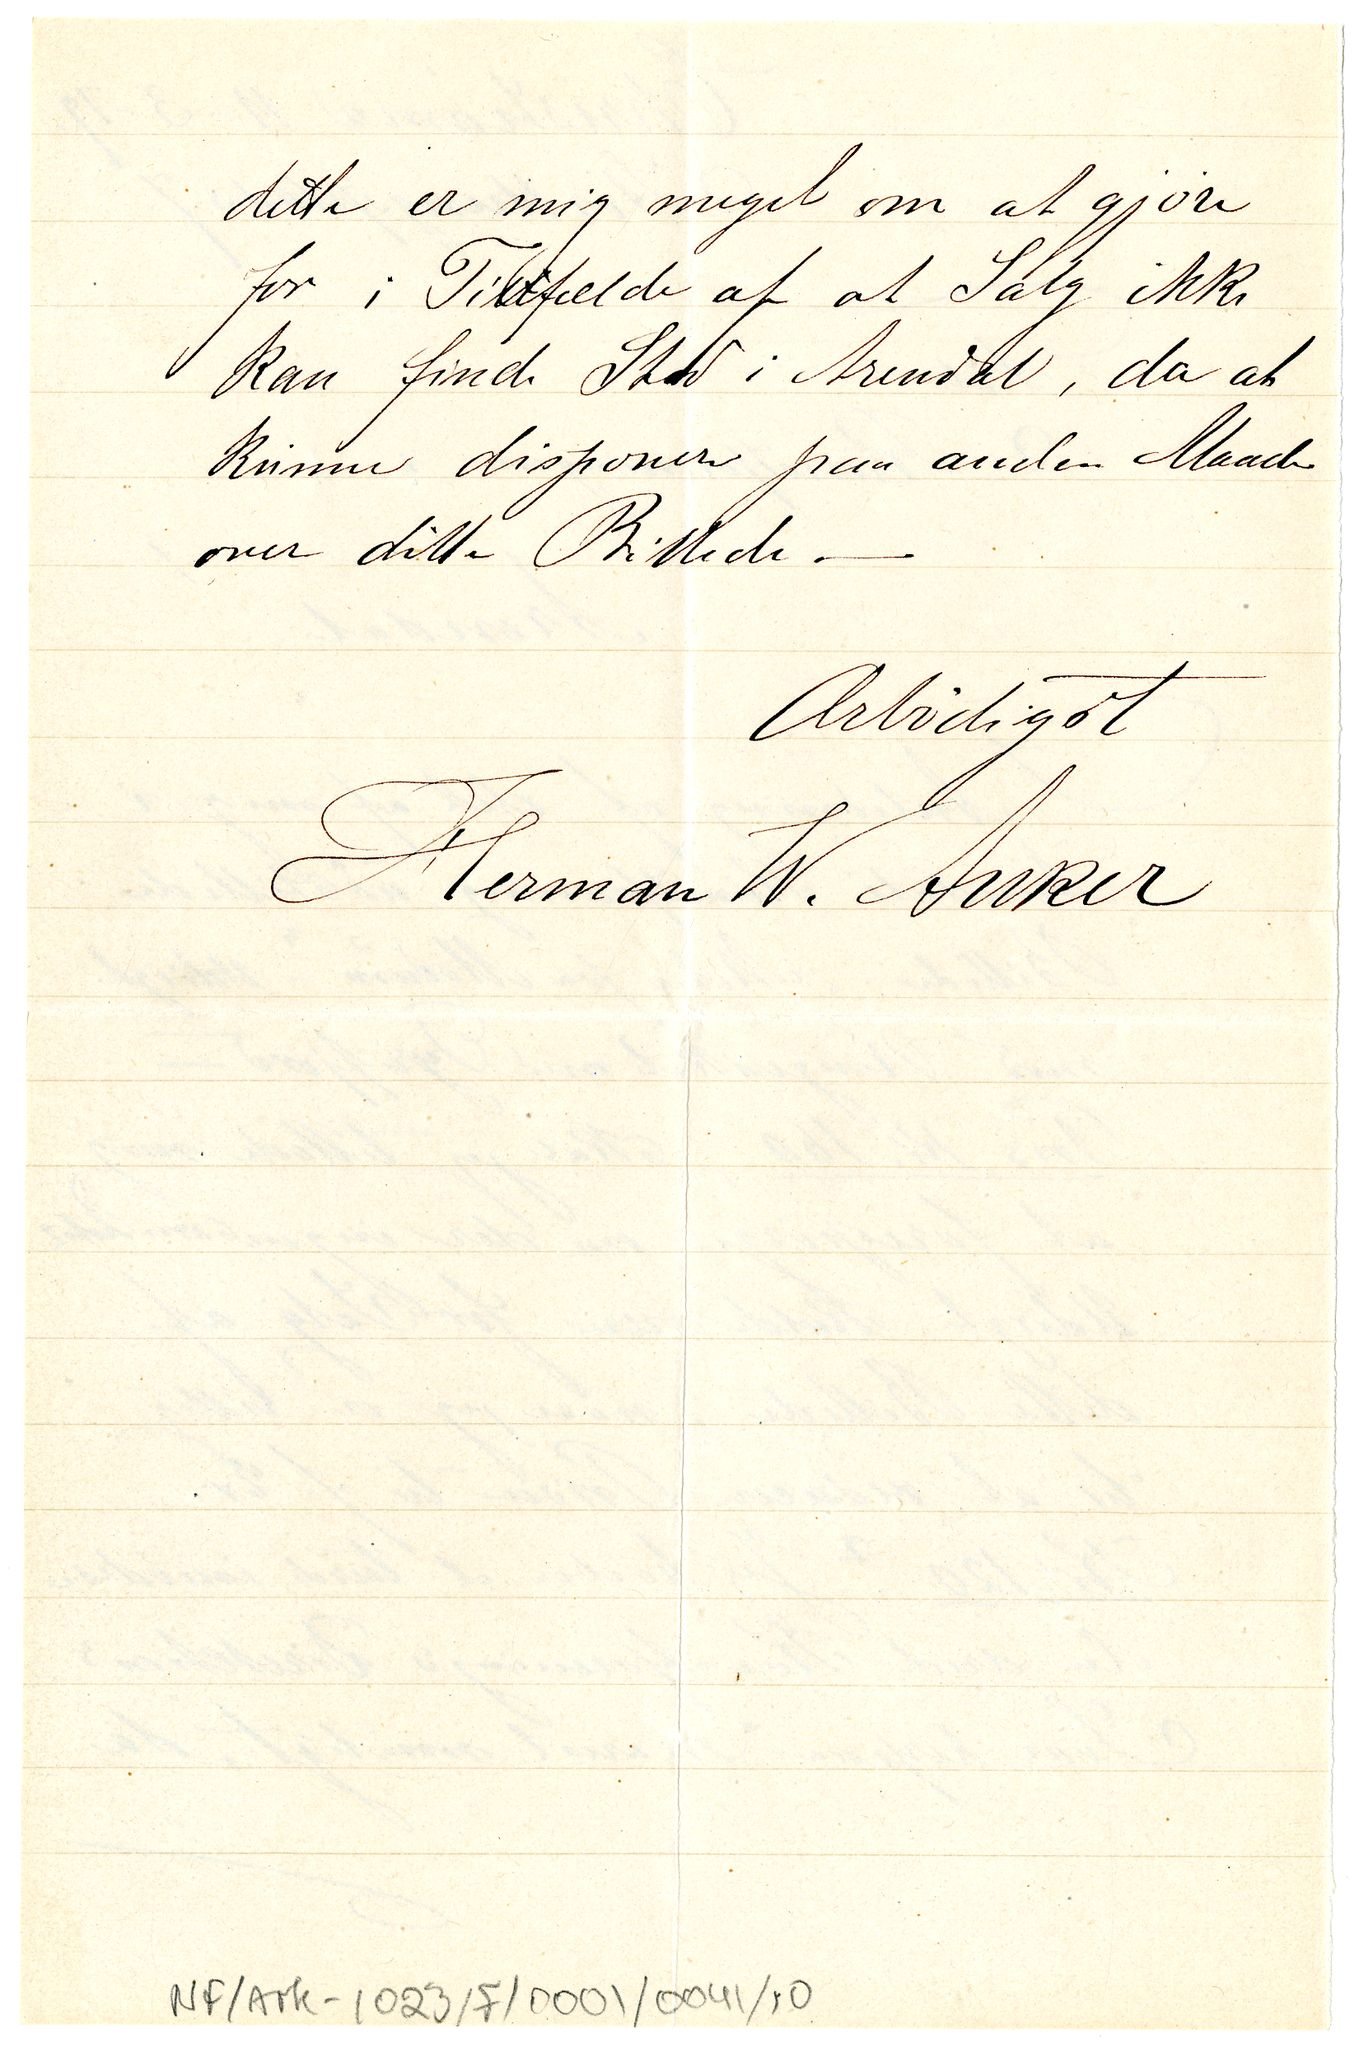 dette er mig meget om at gjøre
for i Tilfælde af at Salg ikke
kan finde Sted i Arendal, da at
kunne disponere paa anden Maade
over dette Billede. —
Ærbødigst
Herman W. Anker
NF/Ark-1023/F/0001/0041/10